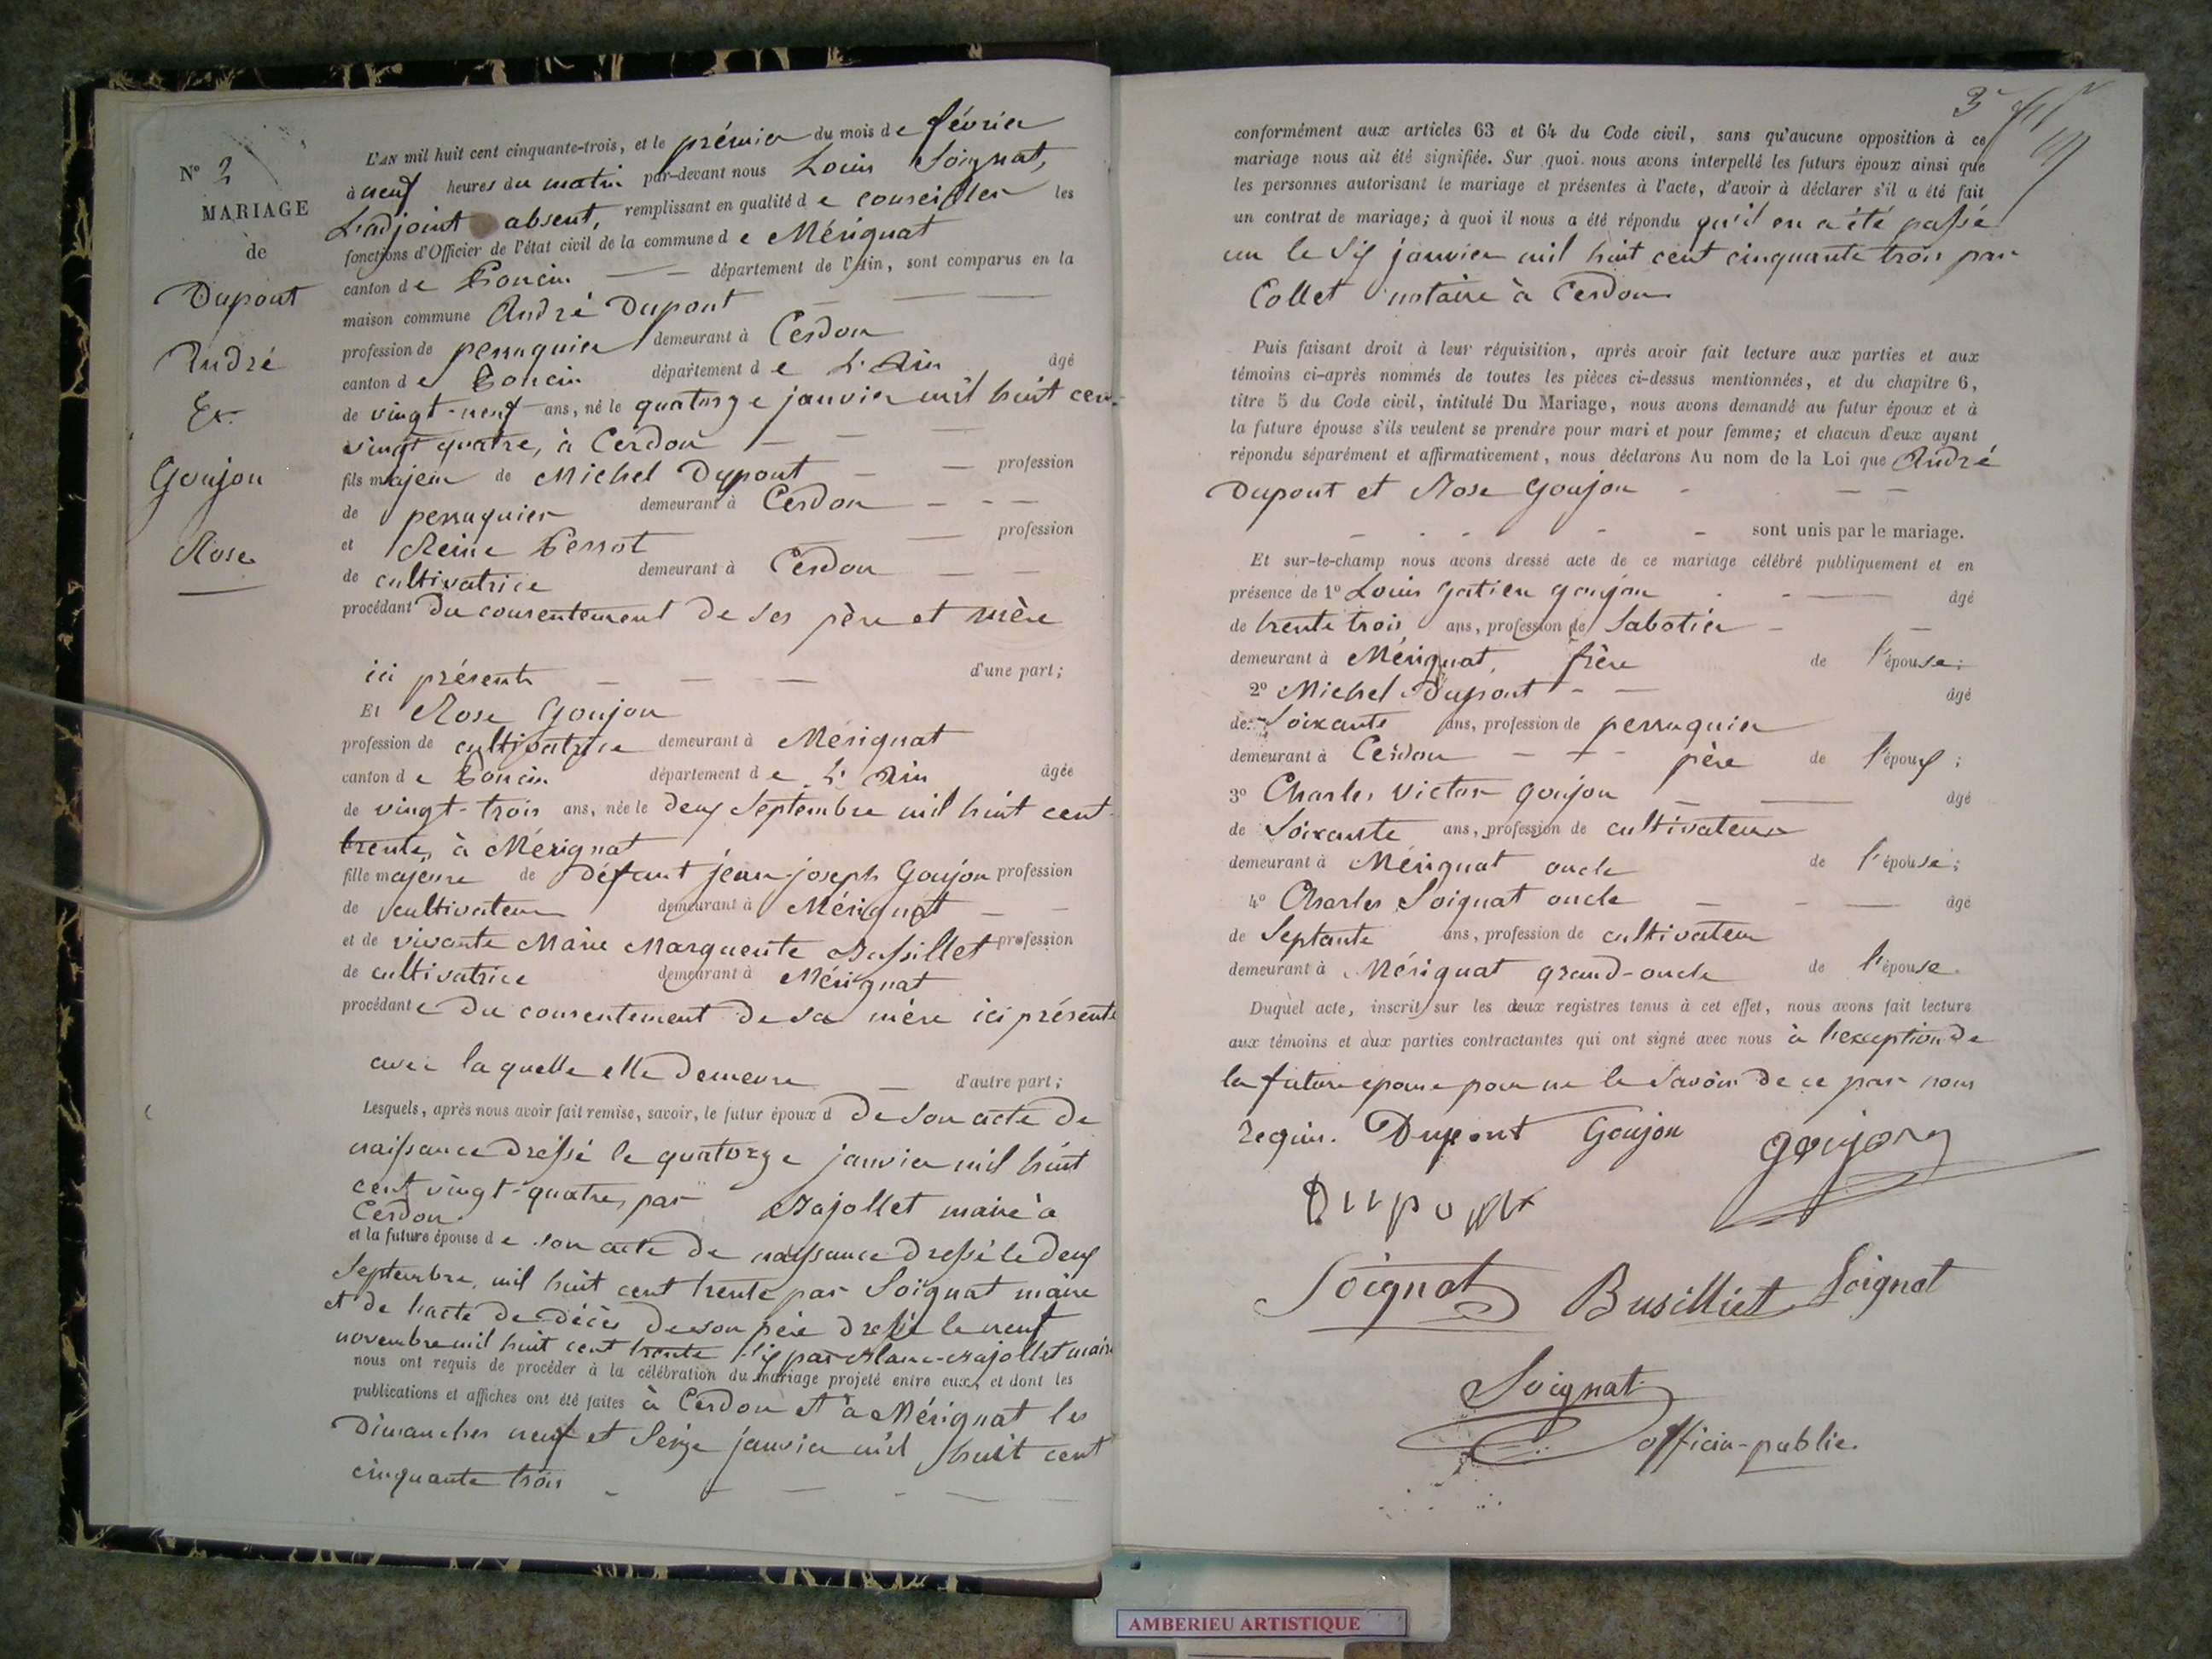 N° 2
MARIAGE
de
Dupont
André
Et
Goujon
Rose
L'AN mil huit cent cinquante-trois, et le prémier du mois de février
à neuf heures du matin par-devant nous Louis Soignat,
L'adjoint absent, remplissant en qualité de conseiller les
fonctions d'Officier de l'état civil de la commune de Mérignat
canton de Poncin — — département de l'Ain, sont comparus en la
maison commune André Dupont
profession de perruquier demeurant à Cerdon
canton de Poncin département de L'Ain âgé
de vingt-neuf ans, né le quatorze janvier mil huit cent
vingt quatre, à Cerdon — — —
fils majeur de Michel Dupont — — profession
de perruquier demeurant à Cerdon - - -
et Reine Perrot — profession
de cultivatrice demeurant à Cerdon — —
procédant du consentement de ses père et mère
ici présents — — — d'une part;
Et Rose Goujon
profession de cultivatrice demeurant à Mérignat
canton de Poncin département de L'Ain âgée
de vingt-trois ans, née le deux Septembre mil huit cent
trente, à Mérignat
fille majeure de défunt jean-joseph Goujon profession
de cultivateur demeurant à Mérignat — —
et de vivante Marie Marguerite profession
de cultivatrice demeurant à Mérignat
procédante du consentement de sa mère ici présente
avec la quelle elle demeure — d'autre part;
Lesquels, après nous avoir fait remise, savoir, le futur époux d de son acte de
naissance dressé le quatorze janvier mil huit
cent vingt-quatre, par Bajollet maire à
Cerdon.
et la future épouse de son acte de naissance dressé le deux
Septembre, mil huit cent trente par Soignat maire
et de l'acte de décès de son père dressé le neuf
novembre mil huit cent trente-six par maire
nous ont requis de procéder à la célébration du mariage projeté entre eux, et dont les
publications et affiches ont été faites à Cerdon et à Mérignat les
Dimanches neuf et Seize janvier mil huit cent
cinquante trois - - — - —
3
conformément aux articles 63 et 64 du Code civil, sans qu'aucune opposition à ce
mariage nous ait été signifiée. Sur quoi nous avons interpellé les futurs époux ainsi que
les personnes autorisant le mariage et présentes à l'acte, d'avoir à déclarer s'il a été fait
un contrat de mariage; à quoi il nous a été répondu qu'il en a été passé
un le Six janvier mil huit cent cinquante trois par
Collet notaire à Cerdon
Puis faisant droit à leur réquisition, après avoir fait lecture aux parties et aux
témoins ci-après nommés de toutes les pièces ci-dessus mentionnées, et du chapitre 6,
titre 5 du Code civil, intitulé Du Mariage, nous avons demandé au futur époux et à
la future épouse s'ils veulent se prendre pour mari et pour femme; et chacun d'eux ayant
répondu séparément et affirmativement, nous déclarons Au nom de la Loi que André
Dupont et Rose Goujon - — —
- - - - - sont unis par le mariage.
Et sur-le-champ nous avons dressé acte de ce mariage célébré publiquement et en
présence de 1° Louis Gatien goujon - - — âgé
de trente trois ans, profession de Sabotier - —
demeurant à Mérignat, frère de l'épouse;
2° Michel Dupont - — âgé
de Soixante ans, profession de perruquier
demeurant à Cerdon — - - père de l'époux;
3° Charles Victor goujon — — âgé
de Soixante ans, profession de cultivateur
demeurant à Mérignat oncle de l'épouse;
4° Charles Soignat oncle — - — âgé
de Septante ans, profession de cultivateur
demeurant à Mérignat grand-oncle de l'épouse.
Duquel acte, inscrit sur les deux registres tenus à cet effet, nous avons fait lecture
aux témoins et aux parties contractantes qui ont signé avec nous à l'exception de
la future epouse pour ne le Savoir de ce par nous
requis. Dupont Goujon goujon
Dupont
Soignat Busilliet Soignat
Soignat
officier-public.
AMBERIEU ARTISTIQUE